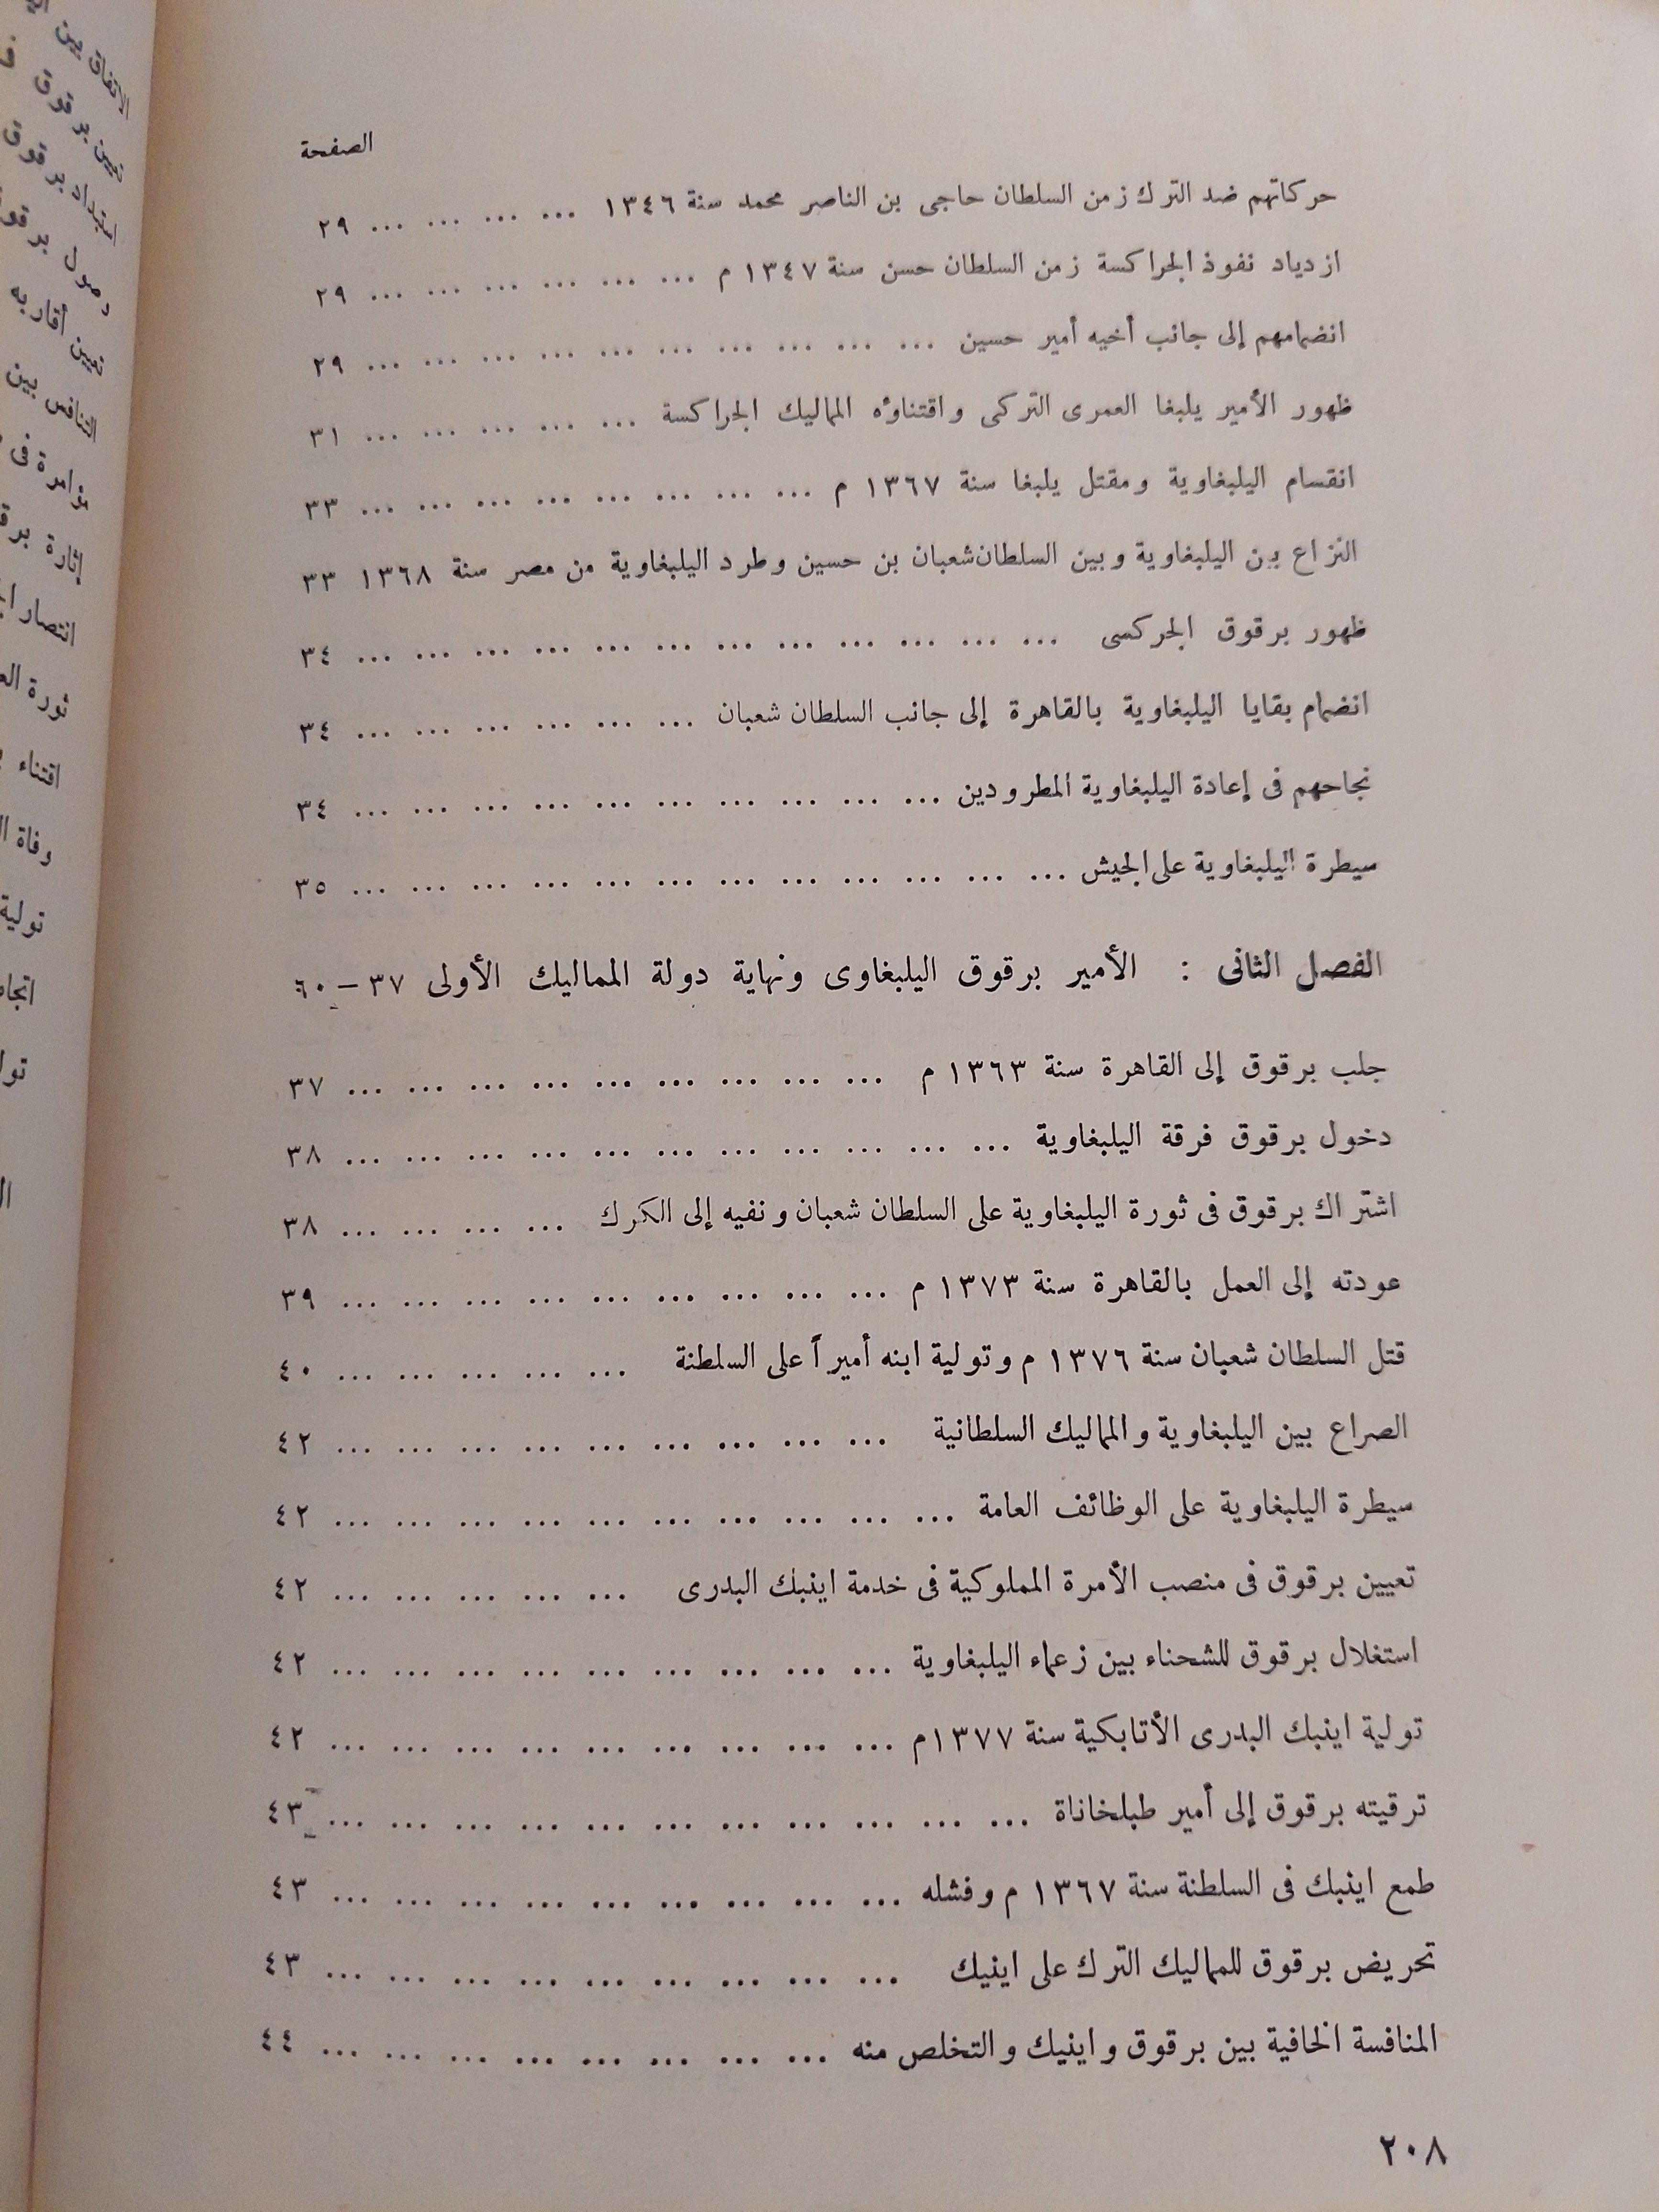 الصفحة
حركاتهم ضد الترك زمن السلطان حاجى بن الناصر محمد سنة ١٣٤٦ ... ... ... ... ٢٩
ازدياد نفوذ الجراكسة زمن السلطان حسن سنة ١٣٤٧ م ... ... ... ... ... ... ٢٩
انضمامهم إلى جانب أخيه أمير حسين ... ... ... ... ... ... ... ... ... ... ٢٩
ظهور الأمير يلبغا العمرى التركى واقتناؤه المماليك الجراكسة ... ... ... ... ... ٣١
انقسام اليلبغاوية ومقتل يلبغا سنة ١٣٦٧ م ... ... ... ... ... ... ... ... ٣٣
النزاع بين اليلبغاوية وبين السلطان شعبان بن حسين وطرد اليلبغاوية من مصر سنة ١٣٦٨ ٣٣
ظهور برقوق الجركسى ... ... ... ... ... ... ... ... ... ... ... ... ٣٤
انضمام بقايا اليلبغاوية بالقاهرة إلى جانب السلطان شعبان ... ... ... ... ... ... ٣٤
نجاحهم فى إعادة اليلبغاوية المطرودين ... ... ... ... ... ... ... ... ... ... ٣٤
سيطرة اليلبغاوية على الجيش ... ... ... ... ... ... ... ... ... ... ... ... ٣٥
الفصل الثانى : الأمير برقوق اليلبغاوى ونهاية دولة المماليك الأولى ٣٧ – ٦٠
جلب برقوق إلى القاهرة سنة ١٣٦٣ م ... ... ... ... ... ... ... ... ... ٣٧
دخول برقوق فرقة اليلبغاوية ... ... ... ... ... ... ... ... ... ... ... ٣٨
اشتراك برقوق فى ثورة اليلبغاوية على السلطان شعبان ونفيه إلى الكرك ... ... ... ... ٣٨
عودته إلى العمل بالقاهرة سنة ١٣٧٣ م ... ... ... ... ... ... ... ... ... ٣٩
قتل السلطان شعبان سنة ١٣٧٦ م وتولية ابنه أميراً على السلطنة ... ... ... ... ... ٤٠
الصراع بين اليلبغاوية والمماليك السلطانية ... ... ... ... ... ... ... ... ... ٤٢
سيطرة اليلبغاوية على الوظائف العامة ... ... ... ... ... ... ... ... ... ... ٤٢
تعيين برقوق فى منصب الأمرة المملوكية فى خدمة اينبك البدرى ... ... ... ... ... ٤٢
استغلال برقوق للشحناء بين زعماء اليلبغاوية ... ... ... ... ... ... ... ... ... ٤٢
تولية اينبك البدرى الأتابكية سنة ١٣٧٧م ... ... ... ... ... ... ... ... ... ٤٢
ترقيته برقوق إلى أمير طبلخاناة ... ... ... ... ... ... ... ... ... ... ... ٤٣
طمع اينبك فى السلطنة سنة ١٣٦٧ م وفشله ... ... ... ... ... ... ... ... ... ٤٣
تحريض برقوق للمماليك الترك على اينيك ... ... ... ... ... ... ... ... ... ٤٣
المنافسة الخافية بين برقوق واينيك والتخلص منه ... ... ... ... ... ... ... ... ٤٤
٢٠٨
الاتفاق بين
تعيين برقوق
استبداد برقوق
وصول
تعيين أقاربه
التنافس بين
مؤامرة فى
إثارة
انتصار
ثورة
اقتناء
وفاة
تولية